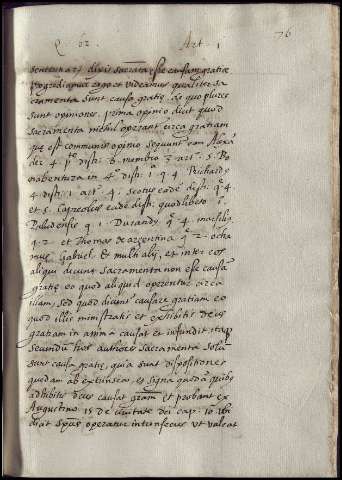 Q 62. Art. 1 76
sacramenta esse causam gratiæ
ergo et videamus qualiter sa
cramenta sunt causa gratiæ, de quo plures
sunt opiniones. prima opinio dicit quod
sacramenta nichil operant circa gratiam
quæ est communis opinio sequunt eam
der 4 p. dist. 8. numero 3 art. 5. Bo
nabentura in 4 dist. 1 q 4 Richardy
4 dist. 1 art. 4. Scotus eadē dist. q. 4.
et 5. Capreolus eadē dist. quodlibeto
Paludensis q 1. Durandy q. 4 marsilus
q. 2 et Thomas de argentina q. 2. ocha
mus Gabuel et multi alij, et inter eos
aliqui dicunt sacramenta non esse causam
gratiæ eo quod aliquid operentur circa
illam, sed quod dicunt causare gratiam eo
quod illis ministratis et exhibitis deus
gratiam in anima causat et infundit itaq
secundū hos authores sacramenta solū
sunt causa gratiæ, quia sunt dispositiones
quedam ab extrinseco, et signa quedā quibus
adhibitis deus causat gratiam et probant ex
Augustino 15 de civitate dei cap.
operatur intrinsecus ut valeat